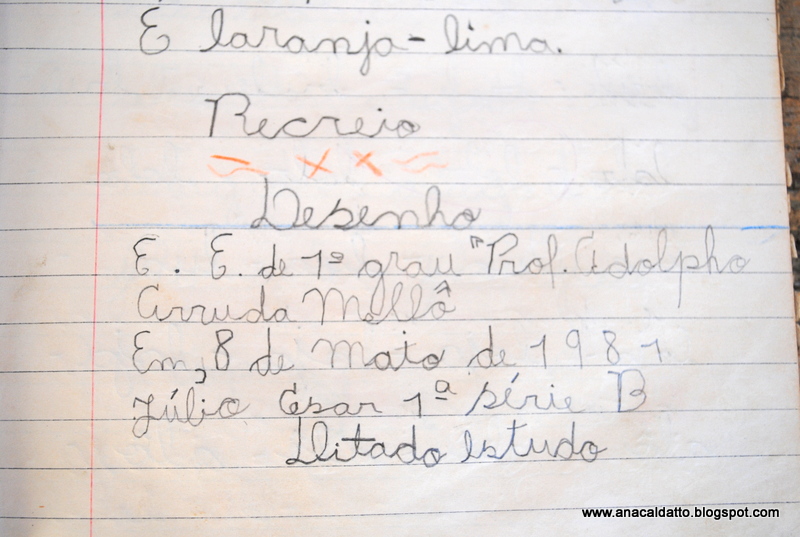 É laranja-lima.
Recreio
Desenho
E. E. de 1º grau "Prof. Adolpho
Arruda Mellô"
Em, 8 de Maio de 1981
Júlio César 1ª série B
Ditado Estudo
www.anacaldatto.blogspot.com